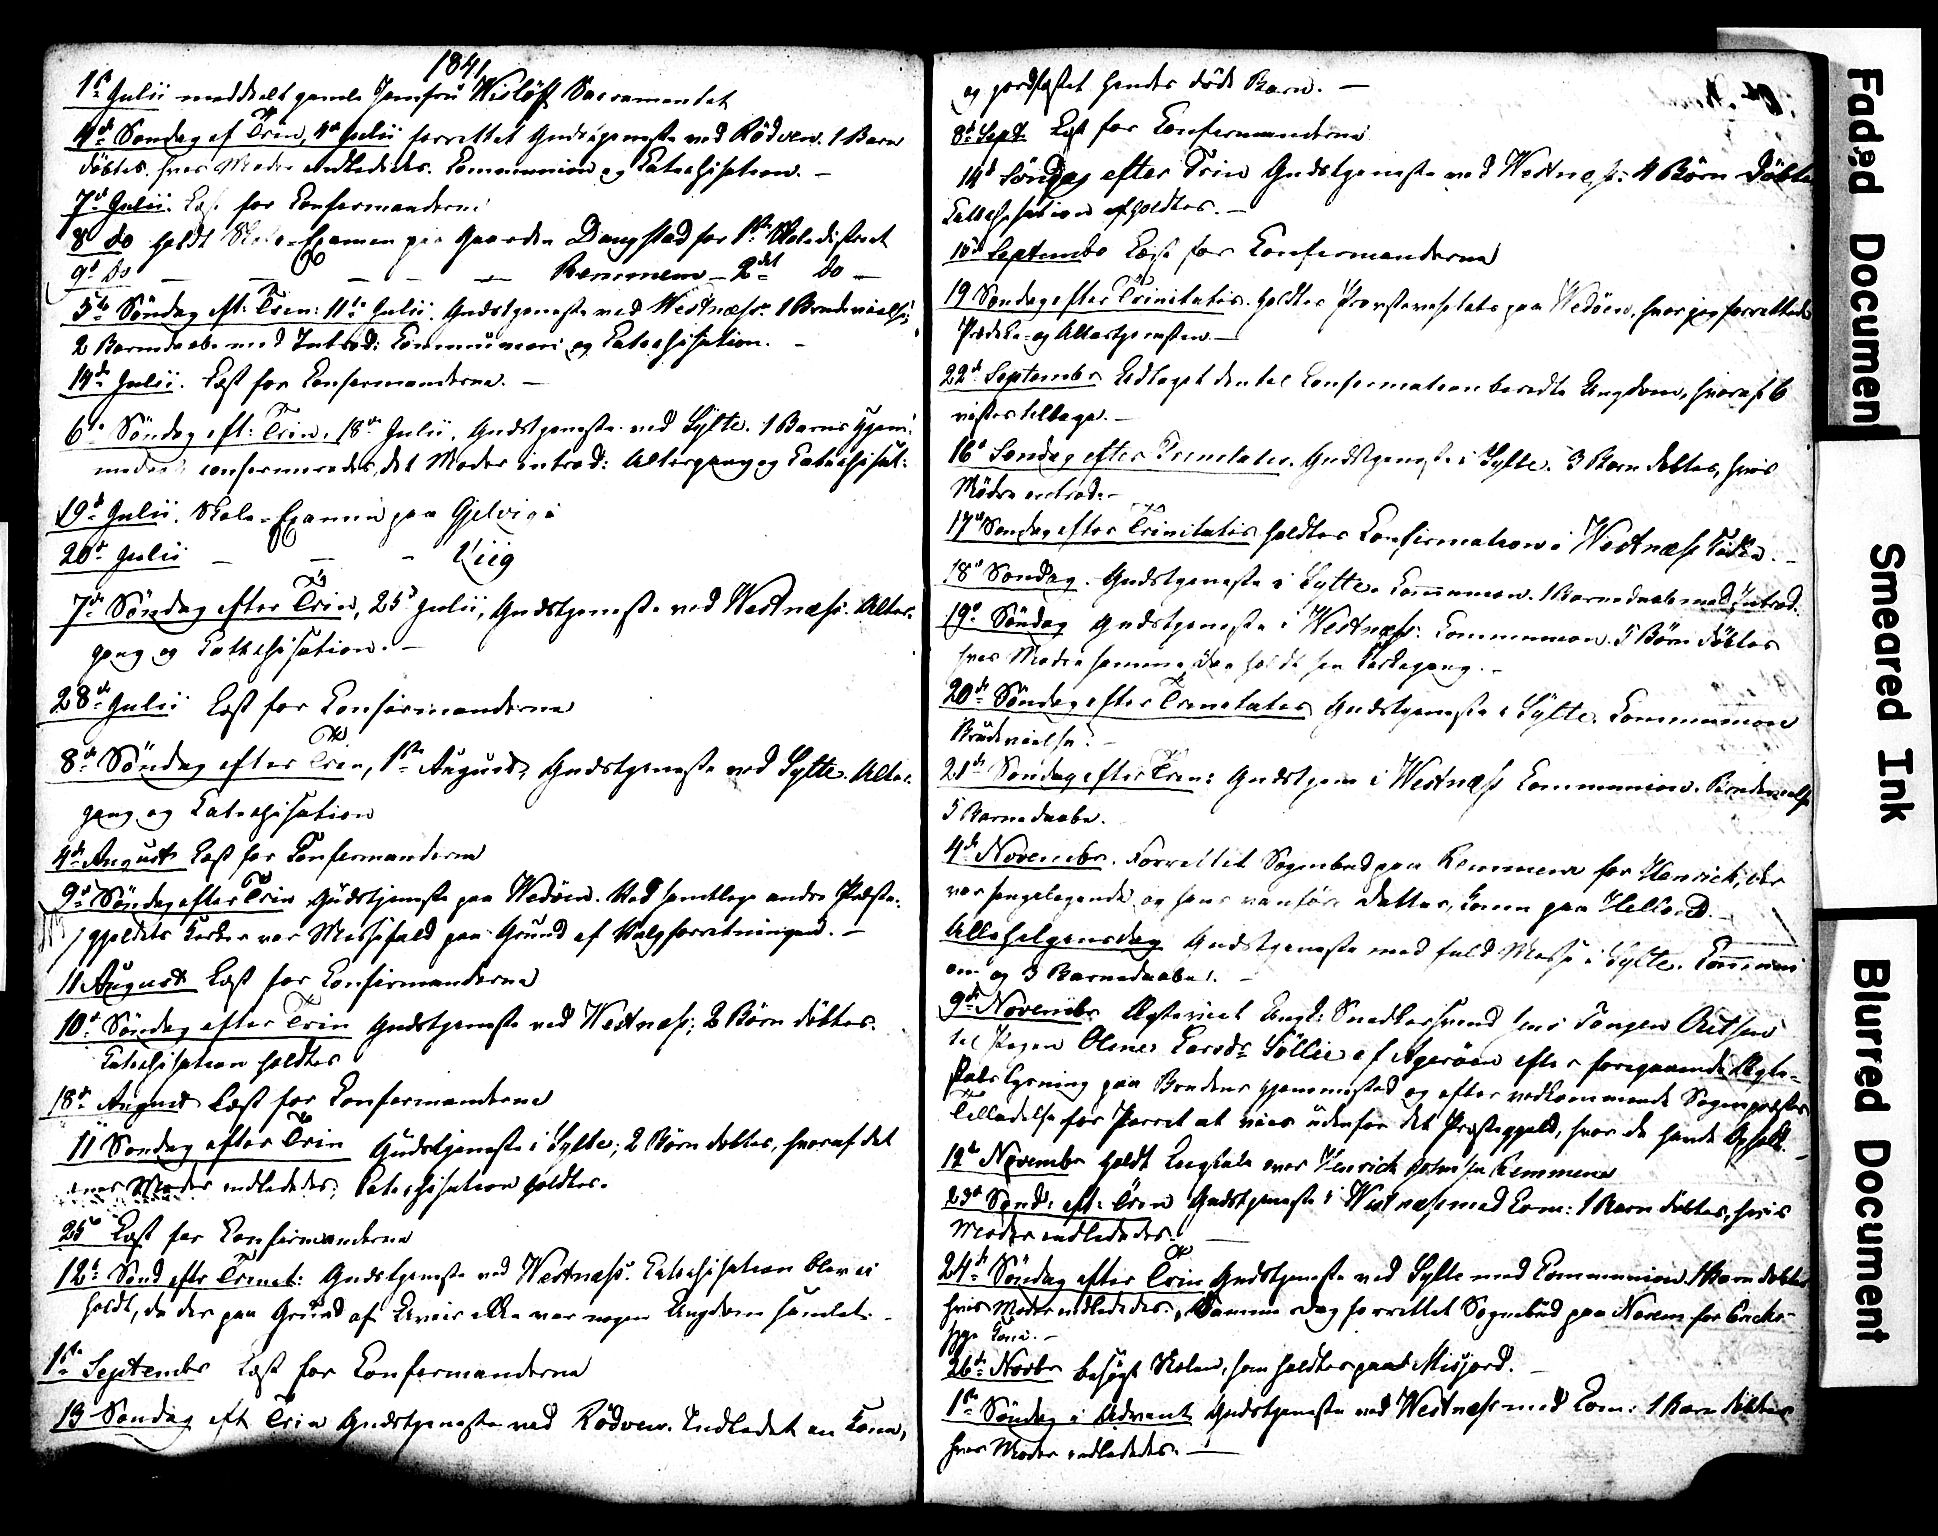 1841,
1ste Julii meddeelt gamle Jomfru Wisløff Sacramentet
4de Søndag ef Trin, 4de Julii forrettet Gudstjeneste ved Rødven. 1 Barn
døbtes, hvis Moder indlededes. Communion og Catechisation. –
7de Julii. Læst for Confirmanderne
8 do holdt Skole-Examen paa Gaarden Daugstad for 1ste Skoledistrict
9de do — — — — — Remmem – 2det do –
5te Søndag eft: Trin: 11te Julii. Gudstjeneste ved Westnæss. 1 Brudevielse,
2 Barnedaab med Introd: Communion og Catechisation. –
14de Julii. Læst for Confirmanderne. –
6te Søndag eft: Trin. 18de Julii. Gudstjeneste ved Sylte. 1 Barns Hjem-
medaab confirmeredes, dets Moder introd: Altergang og Catechisat:
19de Julii. Skole-Examen paa Gjelvig
20de Julii — — - Viig
7de Søndag efter Trin, 25de Julii, Gudstjeneste ved Westnæss. Alter-
gang og Catechisation. –
28de Julii Læst for Confirmanderne
8de Søndag efter Trin, 1ste August, Gudstjeneste ved Sylte. Alter-
gang og Catechisation
4de August Læst for Confirmanderne
9de Søndag efter Trin Gudstjeneste paa Wedøen. Ved samtlige andre Præste-
gjeldets Kirker var Messefald paa Grund af Valgforretningen. –
11 August Læst for Confirmanderne
10de Søndag efter Trin Gudstjeneste ved Westnæss; 2 Børn døbtes.
Catechisation holdtes
18de August Læst for Confirmanderne
11 Søndag efter Trin Gudstjeneste i Sylte; 2 Børn døbtes, hvoraf det
enes Moder indlededes; Catechisation holdtes.
25de Læst for Confirmanderne
12te Sønd eftr Trinit: Gudstjeneste ved Westnæss. Catechisation blev ei
holdt, da der paa Grund af Uveir ikke var nogen Ungdom samlet. –
1ste September Læst for Confirmanderne
13 Søndag eft Trin Gudstjeneste ved Rødven. Indledet en Kone,
og jordfæstet hendes døde Barn. –
8de Sept. Læst for Confirmanderne
14de Søndag efter Trin Gudstjeneste ved Westnæss: 4 Børn døbtes
Catechisation afholdtes. –
15de September Læst for Confirmanderne
19 Søndag efter Trinitatis. Holdtes Provstevisitats paa Wedøen, hvor jeg forrettede
Prædike- og Altertjenesten. –
22de September Udtaget den til Confirmation beredte Ungdom, hvoraf 6
vistes tilbage. –
16de Søndag efter Trinitatis. Gudstjeneste i Sylte. 3 Børn døbtes, hvis
Mødre introd. –
17de Søndag efter Trinitatis holdtes Confirmation i Westnæss Kirke. –
18de Søndag. Gudstjeneste i Sylte. Communion. 1 Barnedaab med Introd.
19de Søndag Gudstjeneste i Westnæss: Communion. 5 Børn døbtes
hvis Mødre samme Dag holdt sin Kirkegang. –
20de Søndag efter Trinitatis Gudstjeneste i Sylte. Communion
Brudevielse. –
21de Søndag efter Trin: Gudstjen i Westnæss Communion. Brudevielse
5 Barnedaabe.
4de November. Forrettet Sognebud paa Remmem for Henrich, der
var sengeliggende og hans vanføre Datter, Karen paa Helland. –
Allehelgensdag Gudstjeneste med fuld Messe i Sylte. Communi
on og 3 Barnedaabe. –
9de November Ægteviet Ungk: Snedkersvend Jens Tangen
til Pigen Oline Larsdr Sollie af Agerøen efter foregaaende Ægte-
skabs Lysning paa Brudens Hjemmested og efter vedkommende Sognepræstes
Tilladelse for Parret at vies udenfor det Præstegjeld, hvor de havde Ophold. –
12te November holdt Liigtale over Henrich Remmem
23de Sønd: eft: Trin Gudstjeneste i Westnæss med Com: 1 Barn døbtes, hvis
Moder indlededes. –
24de Søndag efter Trin Gudstjeneste ved Sylte med Communion. 1 Barn døbtes
hvis Moder indlededes. Samme Dag forrettet Sognebud paa Norem for
syge Kone. –
26de Novbr besøgt Skolen, som holdtes paa Misfjord. –
1ste Søndag i Advent Gudstjeneste ved Westnæss med Com: 1 Barn døbtes
hvis Moder indlededes. –
Faded Document
Smeared Ink
Blurred Document